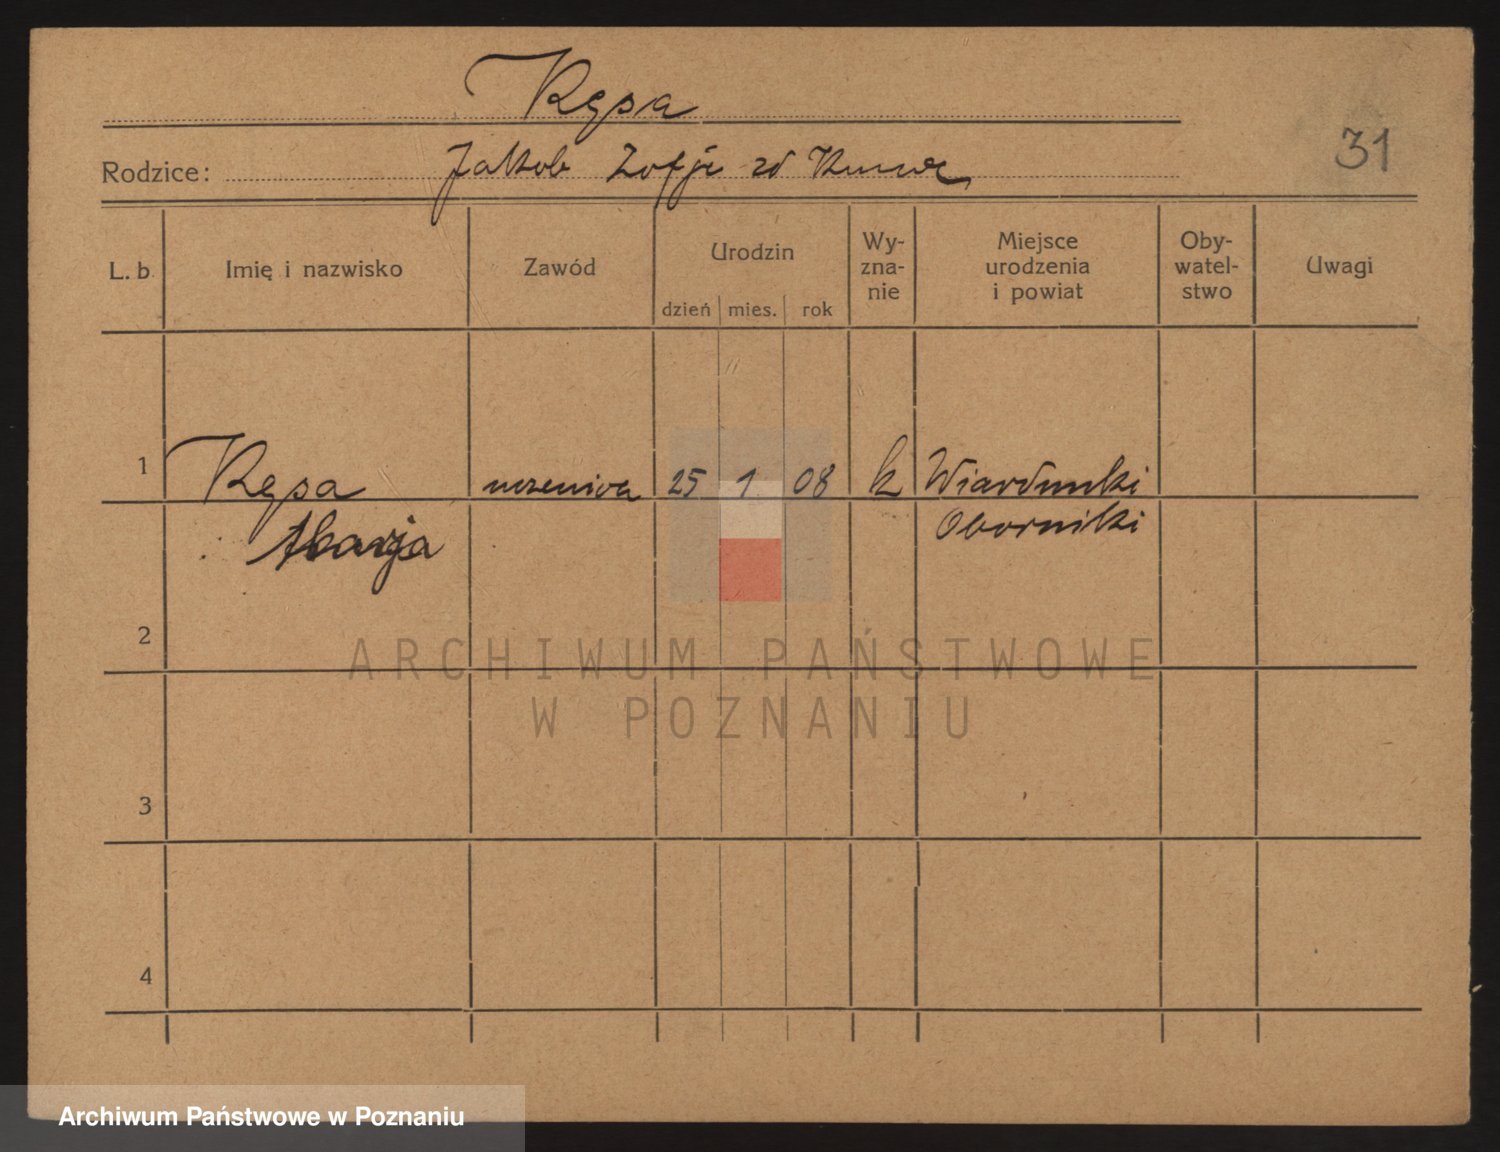 Kępa
31
Rodzice: Jakob Zofje zd
L. b. Imię i nazwisko Zawód Urodzin dzień mies. rok Wy-zna-nie Miejsce urodzenia i powiat Oby-watel-stwo Uwagi
1 Kępa uczenica 25 1 08 k Wiardunki
Marja Oborniki
2
3
4
ARCHIWUM PAŃSTWOWE
W POZNANIU
Archiwum Państwowe w Poznaniu